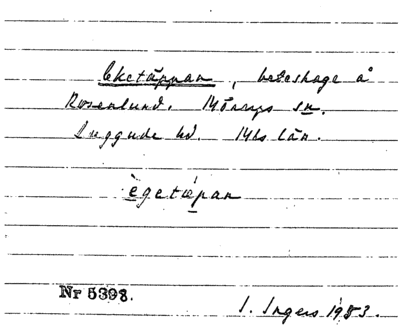 Eketäppan, beteshage å
Rosenlund. Mörarps sn.
Luggude hd. Mhs län.
ègetäpan
Nr 5393.
I. Ingers 1983.